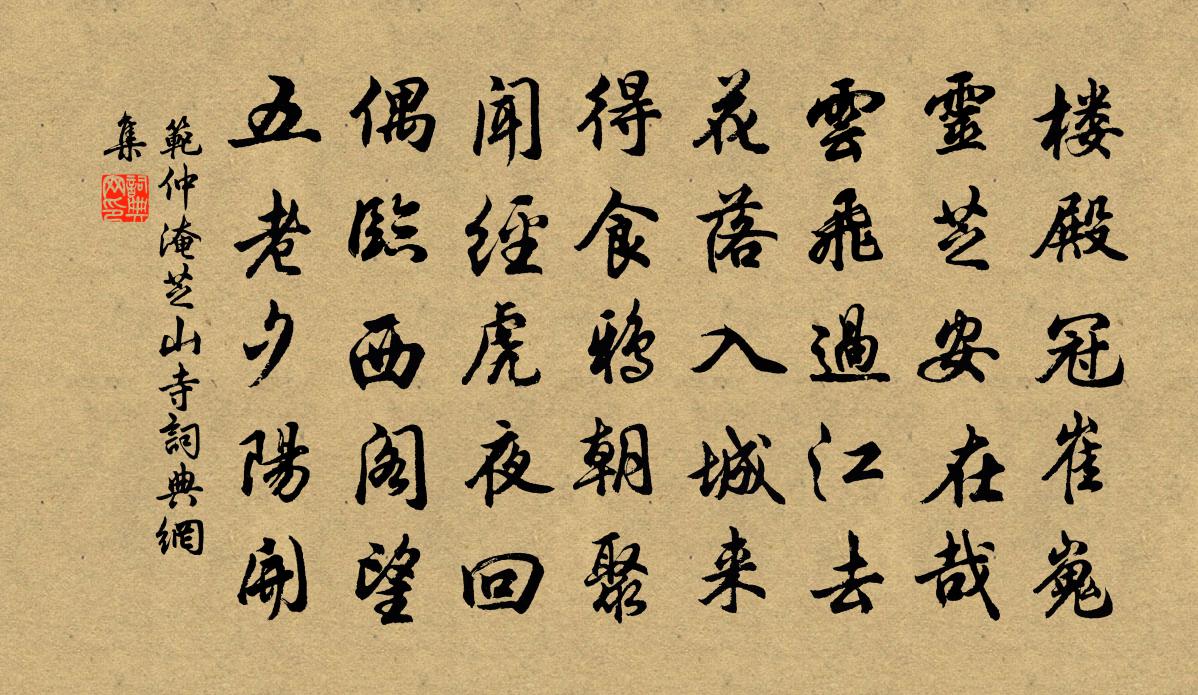 楼殿冠崔嵬
靈芝安在哉
雲飛過江去
花落入城来
得食鴉朝聚
聞經虎夜回
偶臨西阁望
五老夕陽開
範仲淹芝山寺詞典網
集
詞典网印